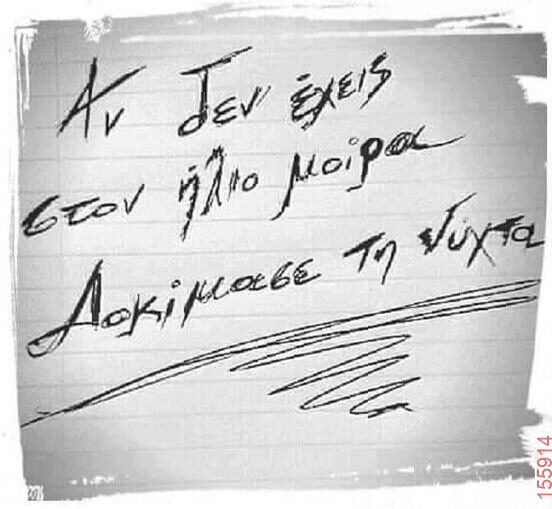 Αν δεν έχεις
στον ήλιο μοίρα
Δοκίμασε τη νύχτα
155914